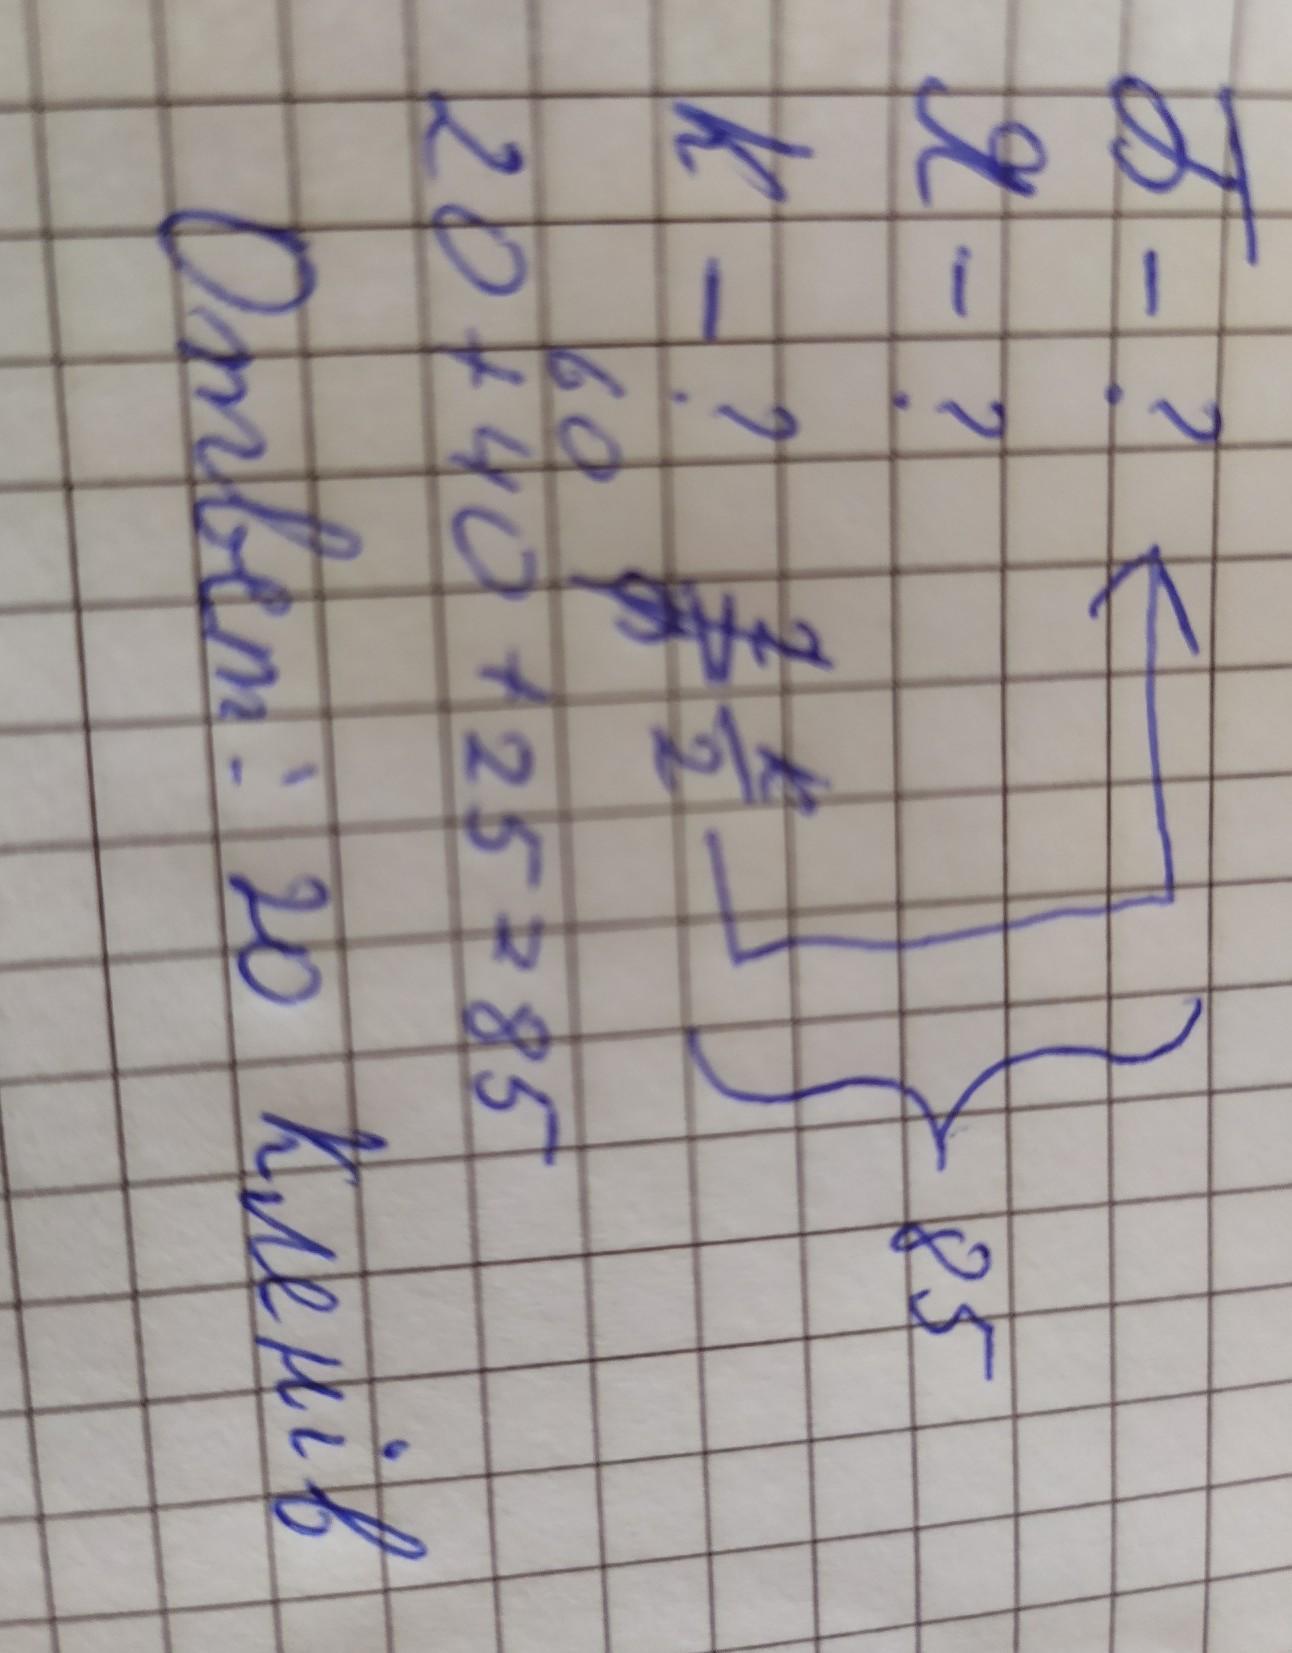 Б - ?
Я - ?
К - ? К/2
85
60
20+40+25=85
Ответ: 20 кленів